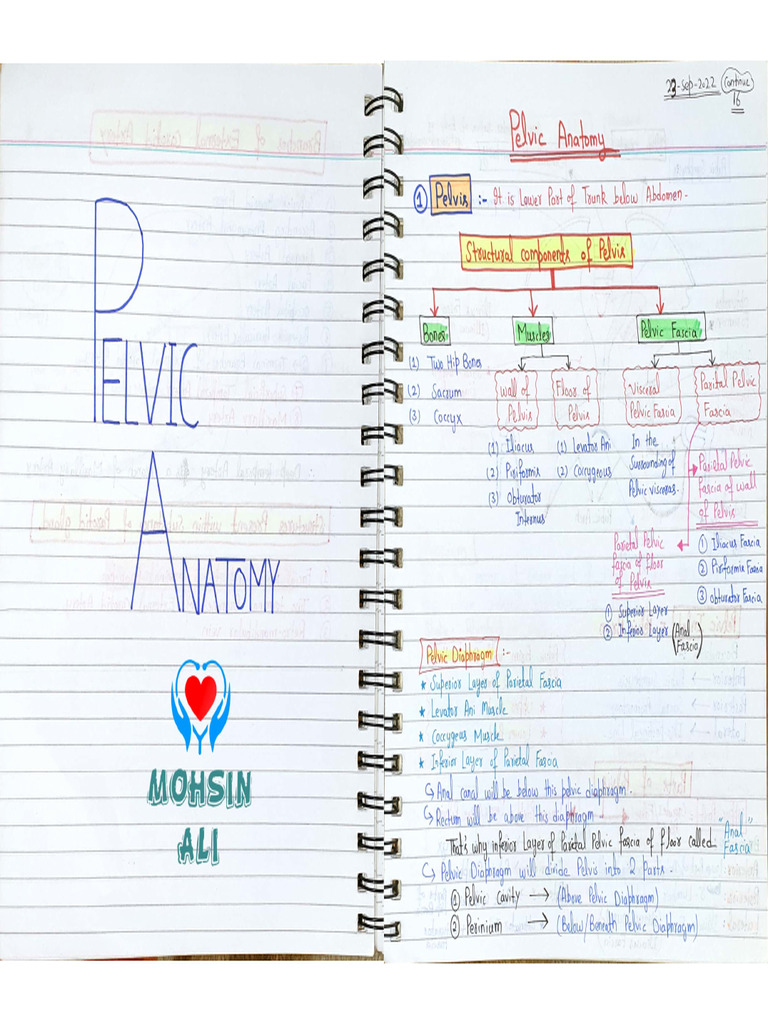 PELVIC
ANATOMY
MOHSIN
ALI
23-Sep-2022 Continue
16
Pelvic Anatomy
① Pelvis :- It is Lower Part of Trunk below Abdomen.
Structural components of Pelvis
Bones Muscles Pelvic Fascia
(1) Two Hip Bones
(2) Sacrum
(3) Coccyx
Wall of
Pelvis
(1) Iliacus
(2) Piriformis
(3) Obturator
Internus
Floor of
Pelvis
(1) Levator Ani
(2) Coccygeous
Visceral
Pelvic Fascia
In the
Surrounding of
Pelvic visceras.
Parital Pelvic
Fascia
Parietal Pelvic
Fascia of wall
of Pelvis
① Iliacus Fascia
② Piriformis Fascia
③ Obturator Fascia
Parietal Pelvic
fascia of floor
of Pelvis
① Superior Layer
② Inferior Layer (Anal
Fascia)
Pelvic Diaphragm :-
* Superior Layer of Parietal Fascia
* Levator Ani Muscle
* Coccygeus Muscle
* Inferior Layer of Parietal Fascia
↳ Anal canal will be below this pelvic diaphragm.
↳ Rectum will be above this diaphragm
That's why inferior Layer of Parietal Pelvic Fascia of floor called "Anal
Fascia"
↳ Pelvic Diaphragm will divide Pelvis into 2 Parts.
① Pelvic cavity → (Above Pelvic Diaphragm)
② Perinium → (Below/Beneath Pelvic Diaphragm)